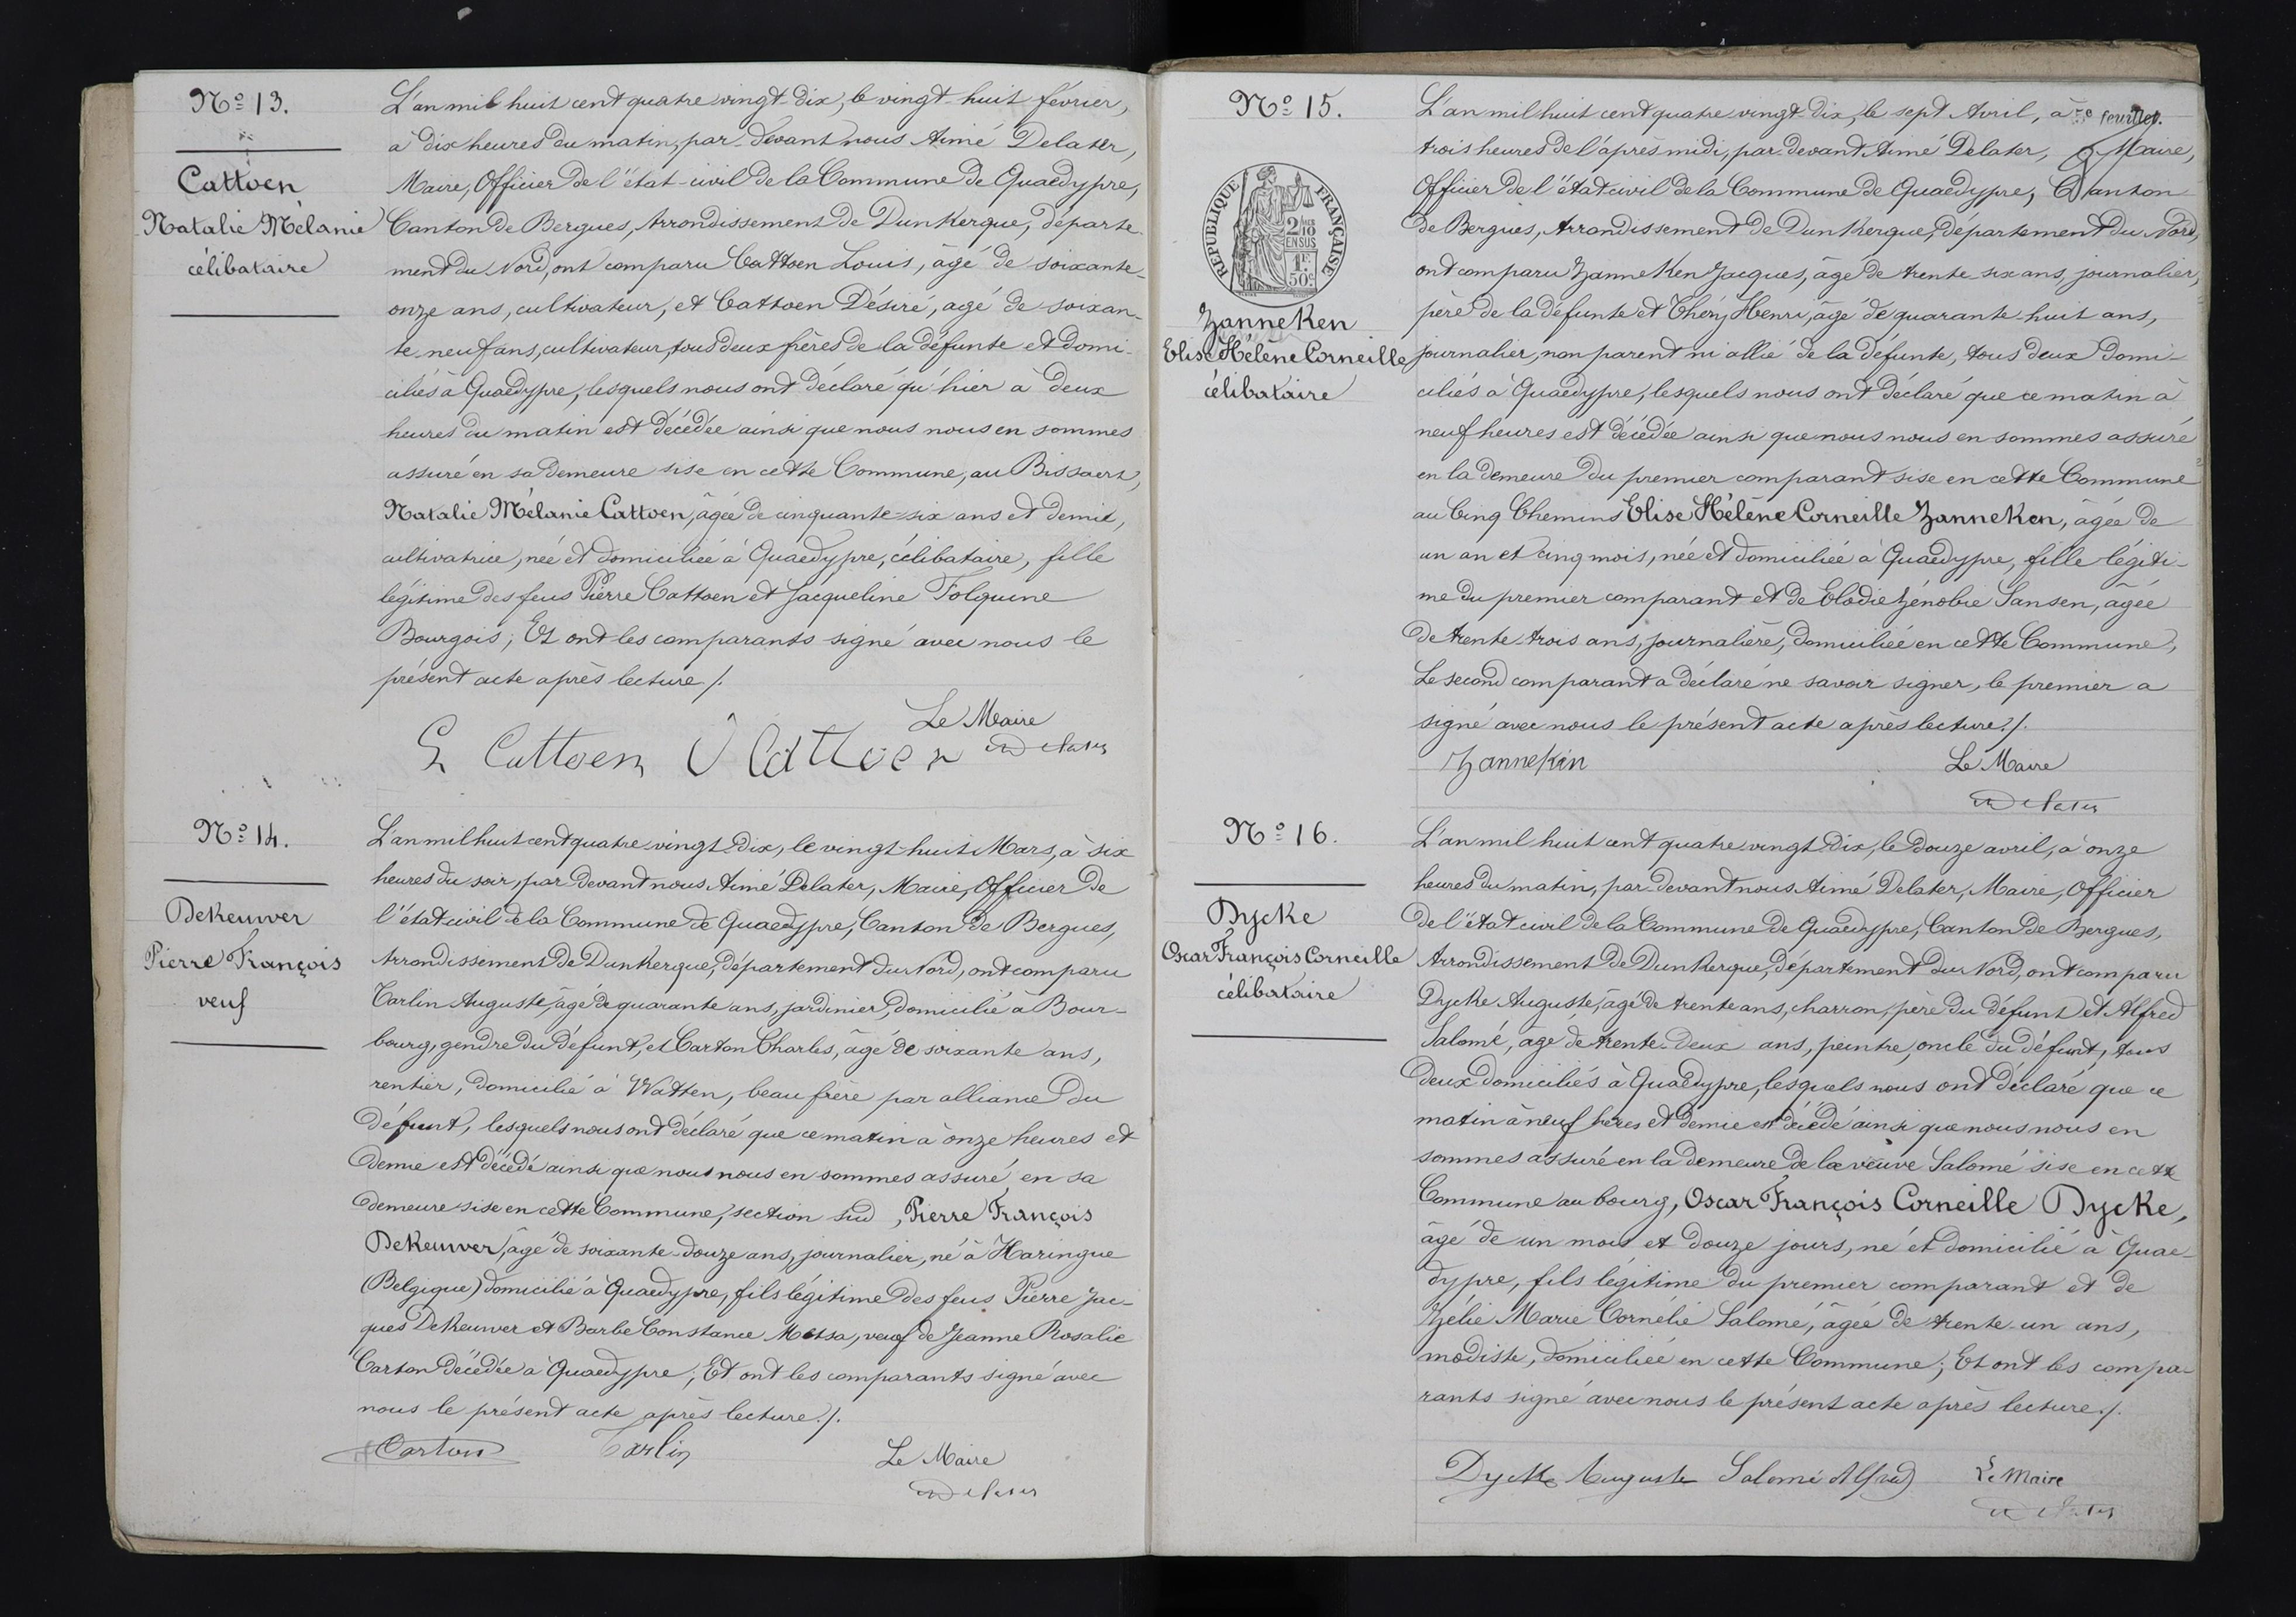 Nº 13.
Cattoen
Natalie Mélanie
célibataire
L'an mil huit cent quatre vingt-dix, le vingt-huit février,
à dix heures du matin, par-devant nous Aimé Delater,
Maire, Officier de l'état-civil de la Commune de Quaedypre,
Canton de Bergues, Arrondissement de Dunkerque, départe-
ment du Nord, ont comparu Cattoen Louis, âgé de soixante-
onze ans, cultivateur, et Cattoen Désiré, agé de soixan-
te-neuf ans, cultivateur, tous deux frères de la défunte et domi-
ciliés à Quaedypre, lesquels nous ont déclaré qu'hier à deux
heures du matin est décédée ainsi que nous nous en sommes
assuré en sa demeure sise en cette Commune, au Bissaert,
Natalie Mélanie Cattoen, âgée de cinquante-six ans et demie,
cultivatrice, née et domiciliée à Quaedypre, célibataire, fille
légitime des feus Pierre Cattoen et Jacqueline Folquine
Bourgois; Et ont les comparants signé avec nous le
présent acte après lecture./.
Le Maire
L Cattoen D Cattoen Delater
Nº 14.
Dekeuwer
Pierre François
veuf
L'an mil huit cent quatre-vingt-dix, le vingt-huit Mars, à six
heures du soir, par devant nous Aimé Delater, Maire, Officier de
l'état civil de la Commune de Quaedypre, Canton de Bergues,
Arrondissement de Dunkerque, département du Nord, ont comparu
Tarlin Auguste, âgé de quarante ans, jardinier, domicilié à Bour-
bourg, gendre du défunt, et Carton Charles, âgé de soixante ans,
rentier, domicilié à Watten, beau frère par alliance du
défunt, lesquels nous ont déclaré que ce matin à onze heures et
demie est décédé ainsi que nous nous en sommes assuré en sa
demeure sise en cette Commune, section sud, Pierre François
Dekeuwer, âgé de soixante-douze ans, journalier, né à Haringue
(Belgique) domicilié à Quaedypre, fils légitime des feus Pierre Jac-
ques Dekeuwer et Barbe Constance Metsa, veuf de Jeanne Rosalie
Carton décédée à Quaedypre; Et ont les comparants signé avec
nous le présent acte après lecture./.
Carton Tarlin Le Maire
Delater
Nº 15.
REPUBLIQUE FRANÇAISE
2/10 EN SUS
1F. 50c
Zanneken
Elise Hélène Corneille
célibataire
L'an mil huit cent quatre vingt-dix, le sept Avril, à feuillet.
trois heures de l'après midi, par devant Aimé Delater, Maire,
Officier de l'état civil de la Commune de Quaedypre, Canton
de Bergues, Arrondissement de Dunkerque, département du Nord,
ont comparu Zanneken Jacques, âgé de trente six ans, journalier,
père de la défunte et Théry Henri, âgé de quarante-huit ans,
journalier, non parent ni allié de la défunte, tous deux domi-
ciliés à Quaedypre, lesquels nous ont déclaré que ce matin à
neuf heures est décédée ainsi que nous nous en sommes assuré
en la demeure du premier comparant sise en cette Commune
au Cinq Chemins Elise Hélène Corneille Zanneken, âgée de
un an et cinq mois, née et domiciliée à Quaedypre, fille légiti-
me du premier comparant et de Elodie Zénobie Sansen, âgée
de trente-trois ans, journalière, domiciliée en cette Commune,
Le second comparant a déclaré ne savoir signer, le premier a
signé avec nous le présent acte après lecture./.
Zannekin Le Maire
Delater
Nº 16.
Dycke
Oscar François Corneille
célibataire
L'an mil huit cent quatre vingt-dix, le douze avril, à onze
heures du matin, par-devant nous Aimé Delater, Maire, Officier
de l'état civil de la Commune de Quaedypre, Canton de Bergues,
Arrondissement de Dunkerque, département du Nord, ont comparu
Dycke Auguste, âgé de trente ans, charron, père du défunt et Alfred
Salomé, âgé de trente-deux ans, peintre, oncle du défunt, tous
deux domiciliés à Quaedypre, lesquels nous ont déclaré que ce
matin à neuf heres et demie est décédé ainsi que nous nous en
sommes assuré en la demeure de la veuve Salomé sise en cette
Commune au bourg, Oscar François Corneille Dycke,
âgé de un mois et douze jours, né et domicilié à Quae-
dypre, fils légitime du premier comparant et de
Zélie Marie Cornélie Salomé, âgée de trente-un ans,
modiste, domiciliée en cette Commune; Et ont les compa-
rants signé avec nous le présent acte après lecture./.
Dycke Auguste Salomé Alfred Le Maire
Delater